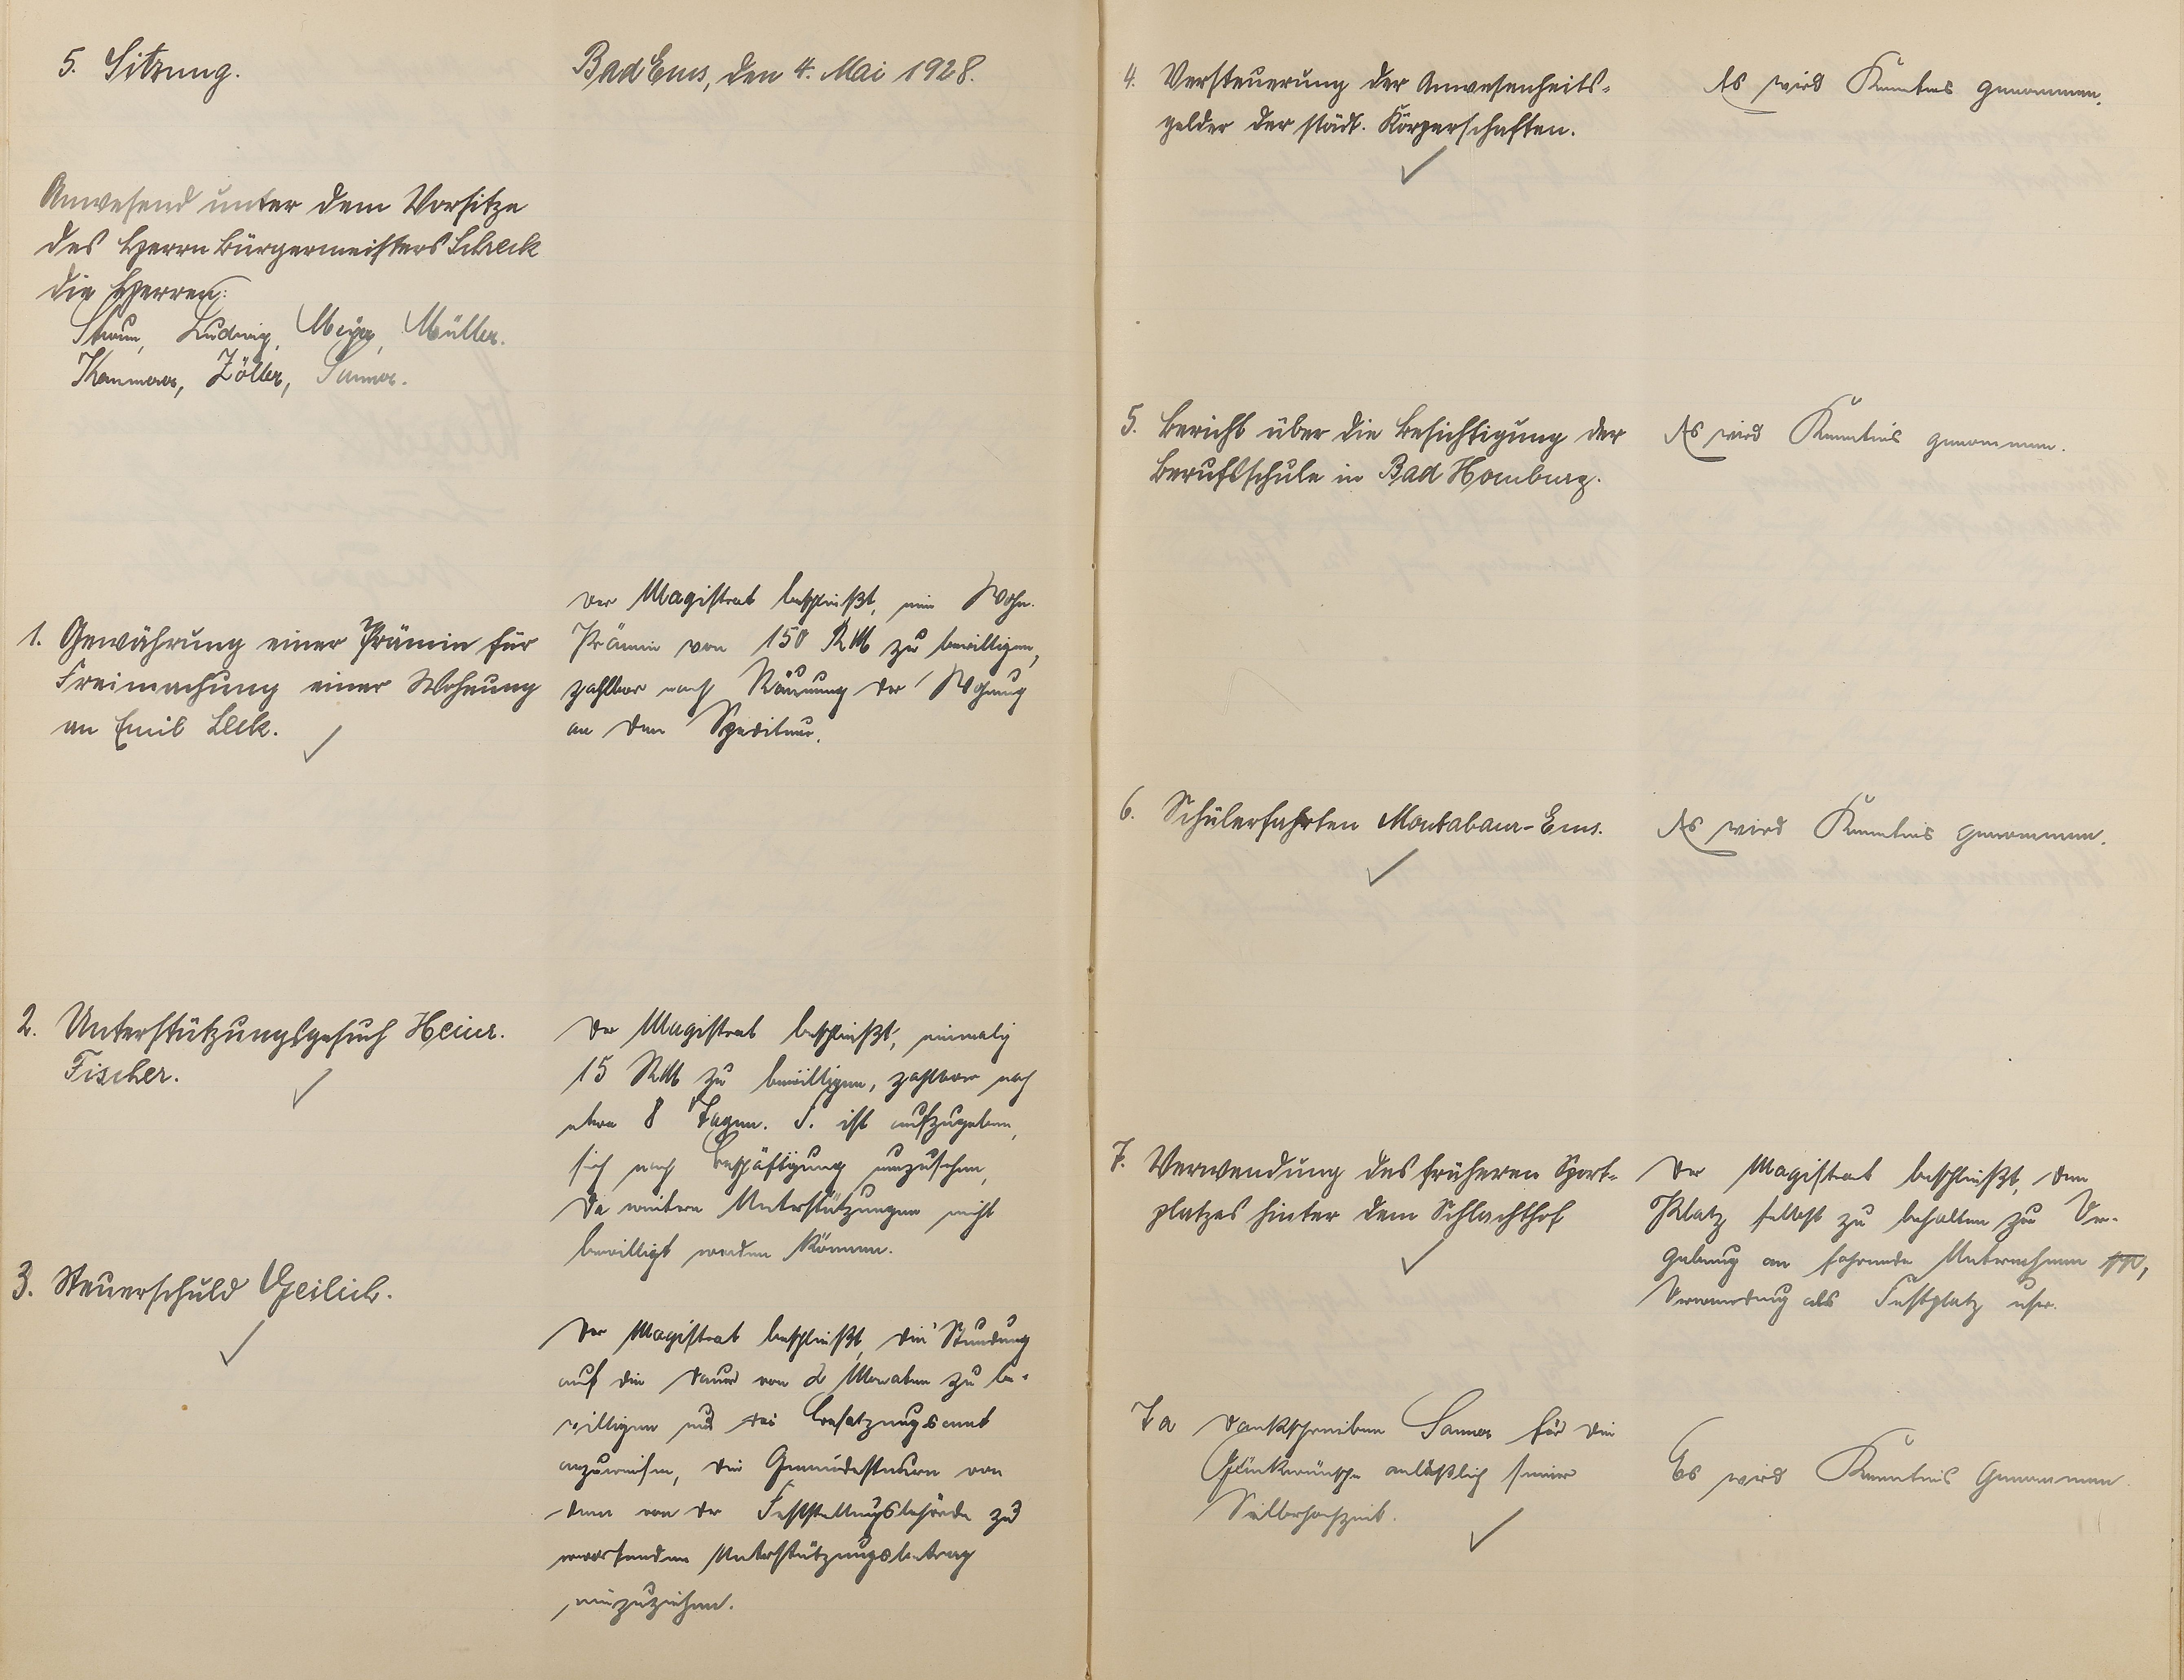 5. Sitzung.
Bad Ems, den 4. Mai 1928.
Anwesend unter dem Vorsitze
des Herrn Bürgermeisters Schreck
die Herren:
Ludwig, Meyer, Müller.
Zöller, Sanner.
1. Gewährung einer Prämie für
Freimachung einer Wohnung
an Emil Leck.
Der Magistrat beschließt, eine Wohn-
Prämie von 150 RM zu bewilligen,
zahlbar nach Räumung der Wohnung
an den Spediteur.
2. Unterstützungsgesuch Heinr.
Fischer.
Der Magistrat beschließt, einmalig
15 RM zu bewilligen, zahlbar nach
etwa 8 Tagen. F. ist aufzugeben,
sich nach Beschäftigung umzusehen,
da weitere Unterstützungen nicht
bewilligt werden können.
3. Steuerschuld Geilich.
Der Magistrat beschließt, die Stundung
auf die Dauer von 2 Monaten zu be-
willigen und das Besatzungsamt
anzuweisen, die Gemeindesteuern von
dem von der Feststellungsbehörde zu
erwartenden Unterstützungsbetrag
einzuziehen.
4. Versteuerung der Anwesenheits-
gelder der städt. Körperschaften.
Es wird Kenntnis genommen.
5. Bericht über die Besichtigung der
Berufsschule in Bad Homburg.
Es wird Kenntnis genommen.
6. Schülerfahrten Montabaur-Ems.
Es wird Kenntnis genommen.
7. Verwendung des früheren Sport-
platzes hinter dem Schlachthof
Der Magistrat beschließt, den
Platz selbst zu behalten zur Ver-
gebung an fahrende Unternehmen pp,
Verwendung als Festplatz usw.
7a Dankschreiben Sanner für die
Glückwünsche anläßlich seiner
Silberhochzeit.
Es wird Kenntnis Genommen.